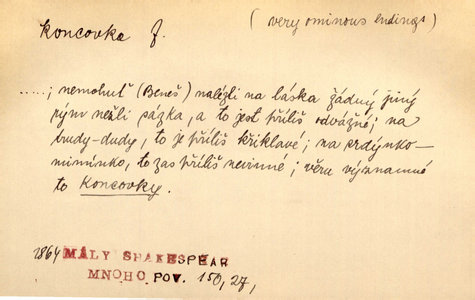 koncovka f. (very ominous endings)
.....; nemohuť (Beneš) nalézti na láska žádný jiný
rým nežli sázka, a to jest příliš odvážné; na
trudy-dudy, to je příliš křiklavé; na srdýnko-
miminko, to zas příliš nevinné; věru významné
to koncovky.
1864 MÁLY SHAKESPEAR
MNOHO. POV. 150, 27,